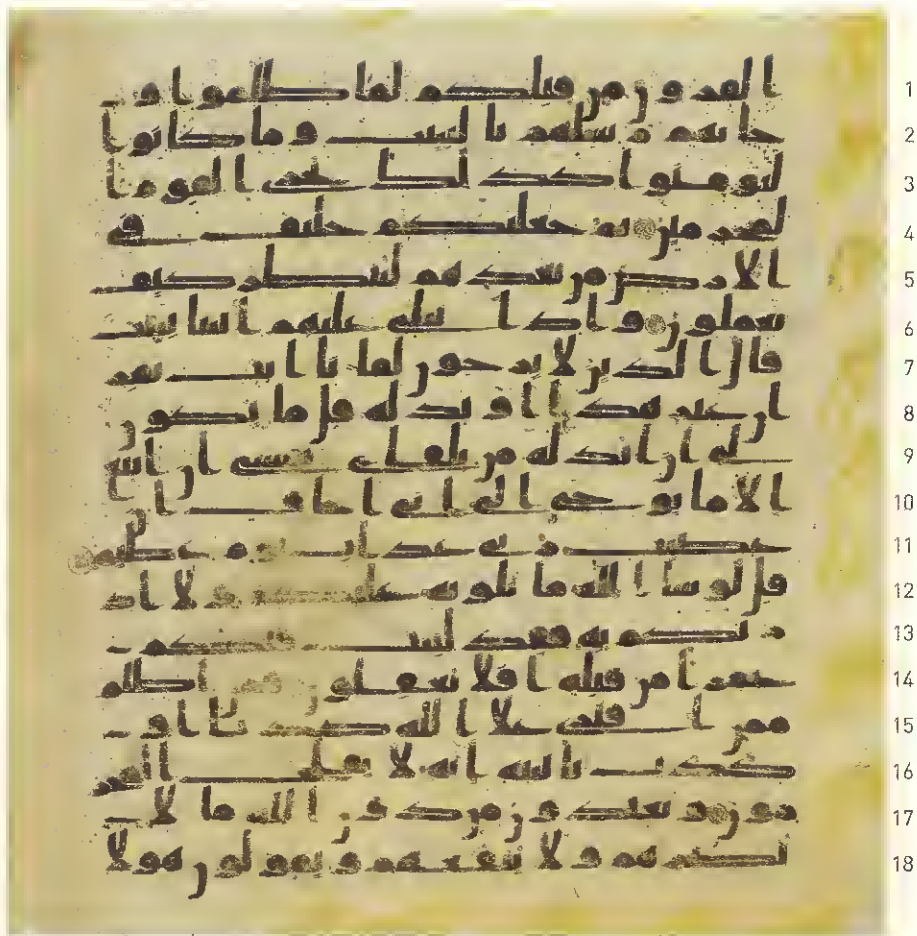 القرون من قبلكم لما ظلموا و
جاتهم رسلهم بالبينت وما كانوا
ليومنوا كذلك نجزى القوم ا
لمجرمين ثم جعلنكم خلئف فى
الارض من بعدهم لننظر كيف
تعملون واذا تتلى عليهم اياتنا بينت
قال الذين لا يرجون لقانا ائت بقر
ان غير هذا او بدله قل ما يكون
لى ان ابدله من تلقاى نفسى ان اتبع
الا ما يوحى الى انى اخاف ان
عصيت ربى عذاب يوم عظيم
قل لو شا الله ما تلوته عليكم ولا اد
ريكم به فقد لبثت فيكم
عمرا من قبله افلا تعقلون فمن اظلم
ممن افترى على الله كذبا او
كذب بايته انه لا يفلح المجر
مون ويعبدون من دون الله ما لا ي
ضرهم ولا ينفعهم ويقولون هولا
1
2
3
4
5
6
7
8
9
10
11
12
13
14
15
16
17
18